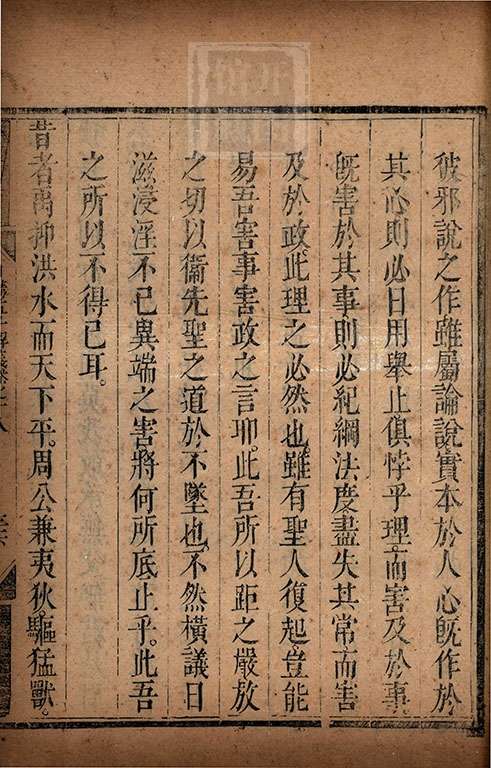 彼邪說之作雖屬論說實本於人心旣作於
其心則必日用舉止俱悖乎理而害及於事
旣害於其事則必紀綱法度盡失其常而害
及於政此理之必然也雖有聖人復起豈能
易吾害事害政之言耶此吾所以距之嚴放
之切以衞先聖之道於不墜也不然橫議日
滋浸淫不已異端之害將何所底止乎此吾
之所以不得已耳。
昔者禹抑洪水而天下平。周公兼夷狄。驅猛獸。